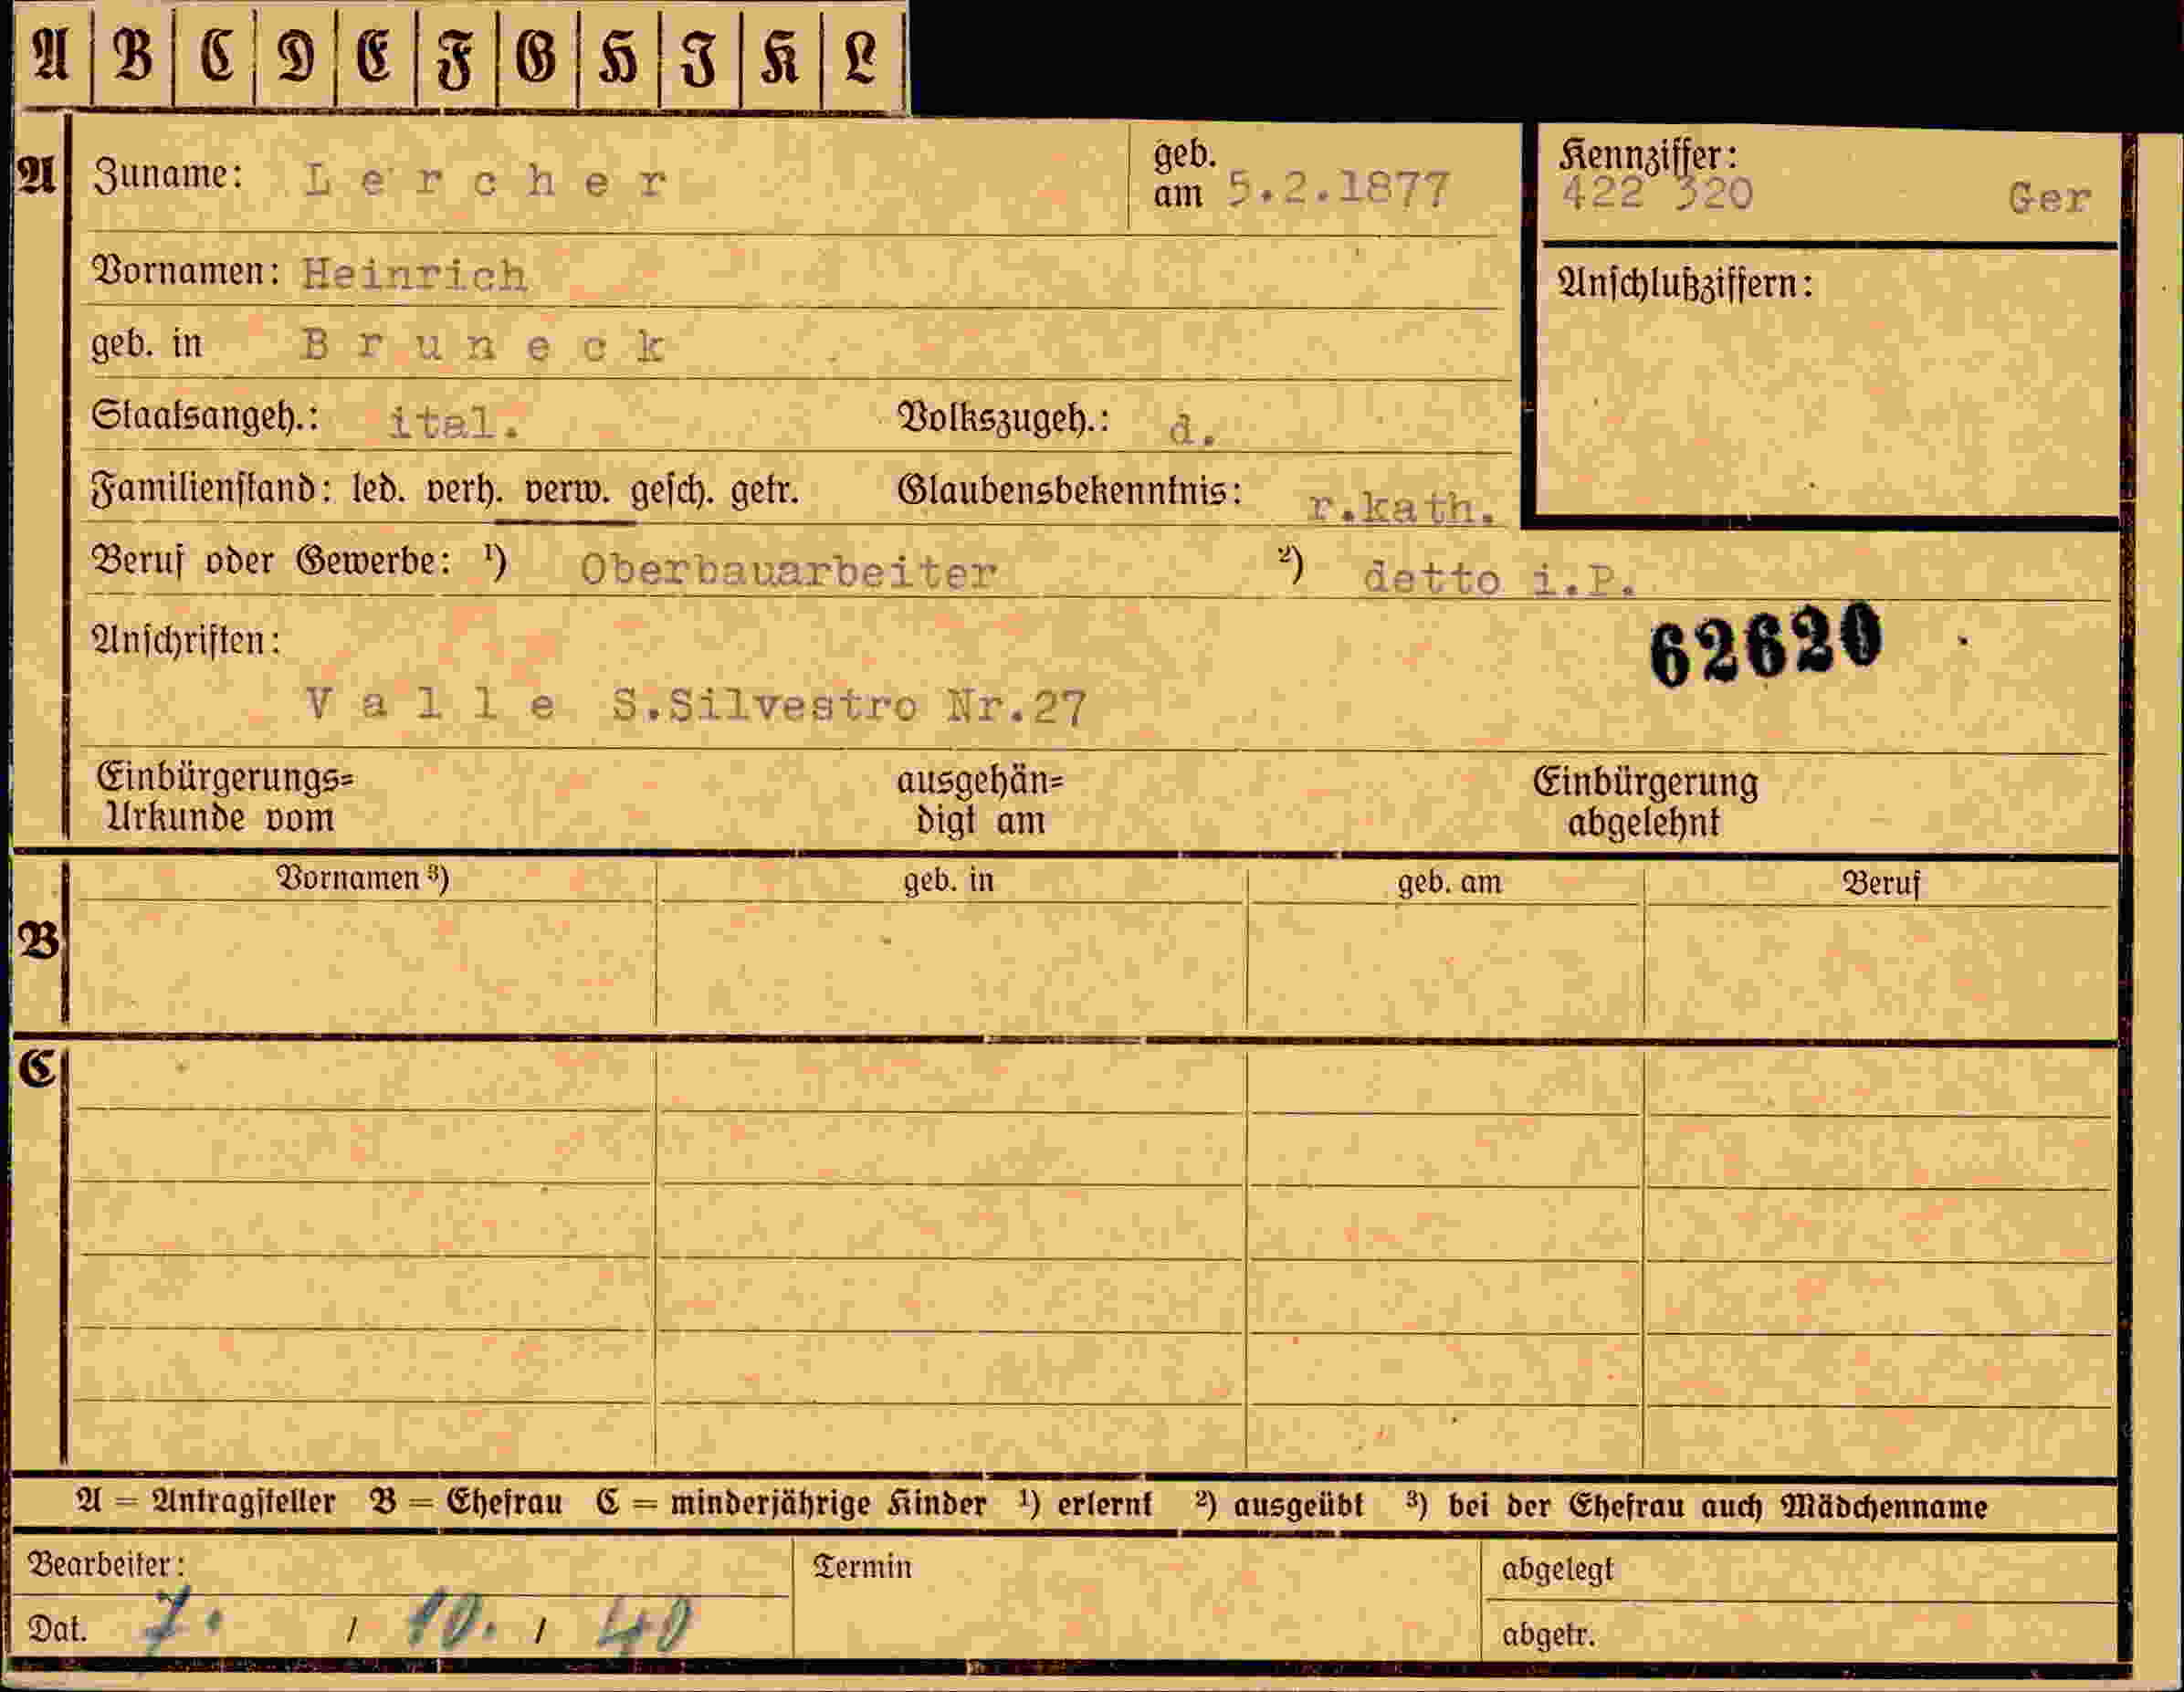 A B C D E F G H I K L
A Zuname: Lercher geb. am 5.2.1877
Kennziffer: 422 320 Ger
Vornamen: Heinrich
Anschlußziffern:
geb. in Bruneck
Staatsangeh.: ital. Volkszugeh.: d.
Familienstand: led. verh. verw. gesch. getr. Glaubensbekenntnis: r.kath.
Beruf oder Gewerbe: ¹) Oberbauarbeiter ²) detto i.P.
Anschriften: 62620
Valle S.Silvestro Nr.27
Einbürgerungs= ausgehän= Einbürgerung
Urkunde vom digt am abgelehnt
Vornamen ³) geb. in geb. am Beruf
B
C
A = Antragsteller B = Ehefrau C = minderjährige Kinder ¹) erlernt ²) ausgeübt ³) bei der Ehefrau auch Mädchenname
Bearbeiter: Termin abgelegt
Dat. 7. / 10. / 40 abgetr.